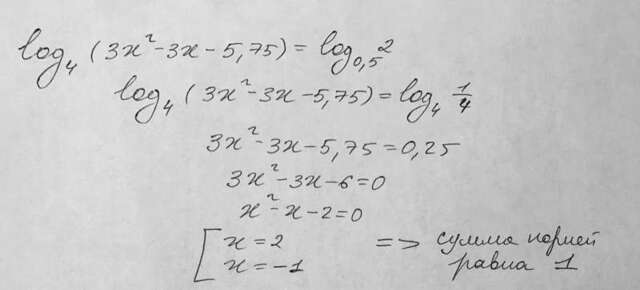 log₄ (3x² - 3x - 5,75) = log₀,₅ 2
log₄ (3x² - 3x - 5,75) = log₄ 1/4
3x² - 3x - 5,75 = 0,25
3x² - 3x - 6 = 0
x² - x - 2 = 0
[ x = 2 => сумма корней
x = -1 равна 1